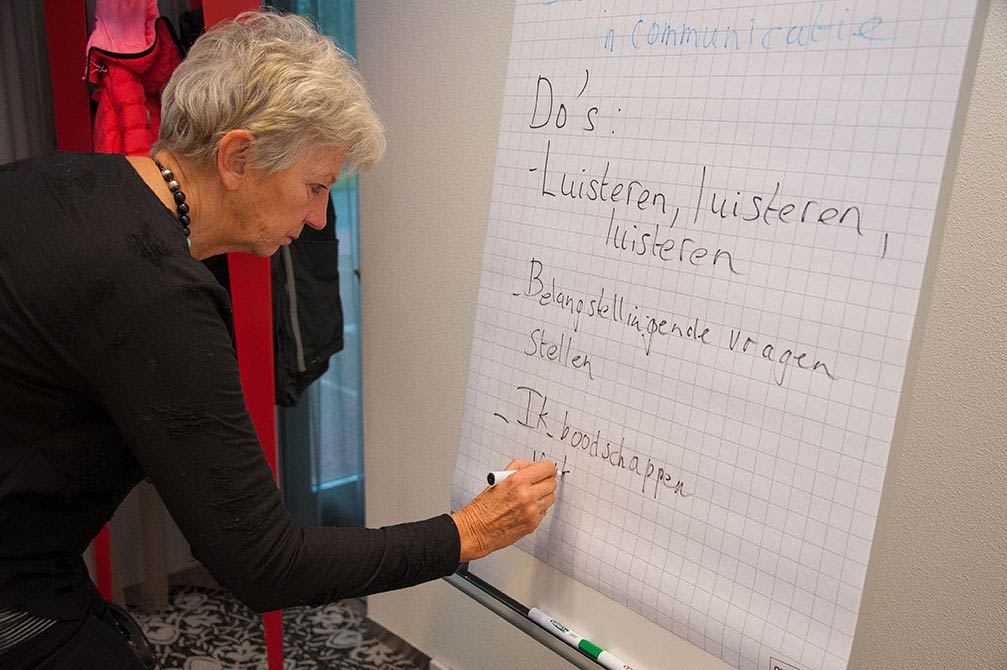 in communicatie
Do's:
-Luisteren, luisteren,
luisteren
-Belangstellingende vragen
Stellen
- Ik boodschappen